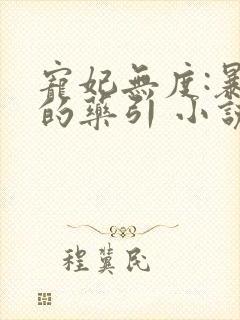 寵妃無度:暴
的藥引 小說
程冀民